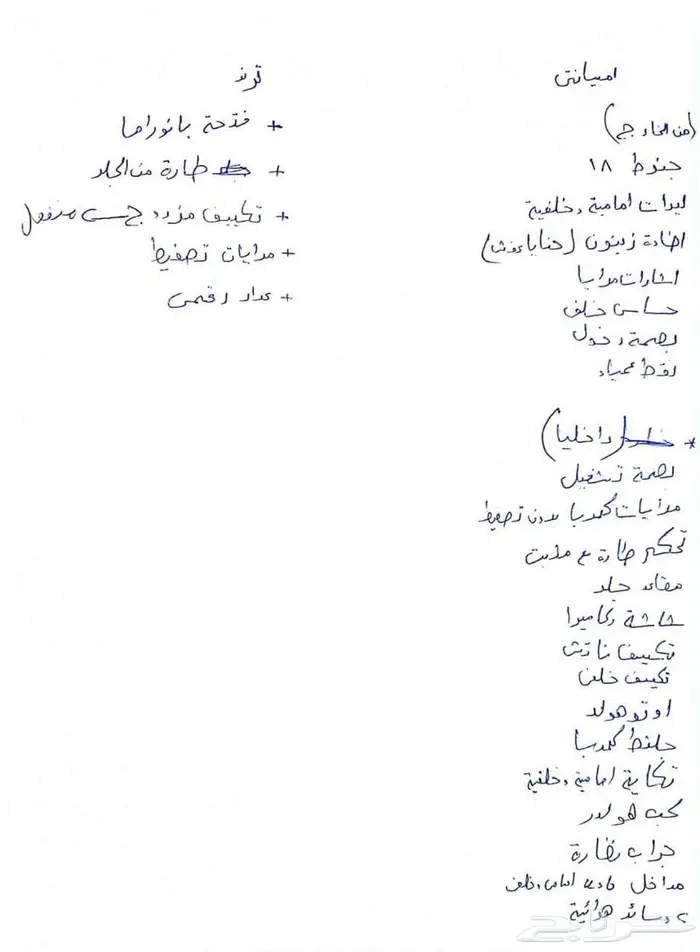 امبيانتي
(من الخارج)
جنوط ١٨
ليدات امامية وخلفية
اضاءة زينون (حنايا عفش)
اشارات مرايا
حساس خلف
بصمة دخول
نقط عمياء
* (داخليا)
بصمة تشغيل
مرايات كهربا بدون تصفيط
تحكم طارة ع مثبت
مقاعد جلد
شاشة وكاميرا
تكييف تاتش
تكييف خلفي
اوتوهولد
جلنط كهربا
تكاية امامية وخلفية
كب هولدر
جراب نظارة
مداخل امامي وخلف
٢ وسائد هوائية
ترند
+ فتحة بانوراما
+ طارة من الجلد
+ تكييف مزدوج منفصل
+ مرايات تصفيط
+ عداد رقمي
حراج